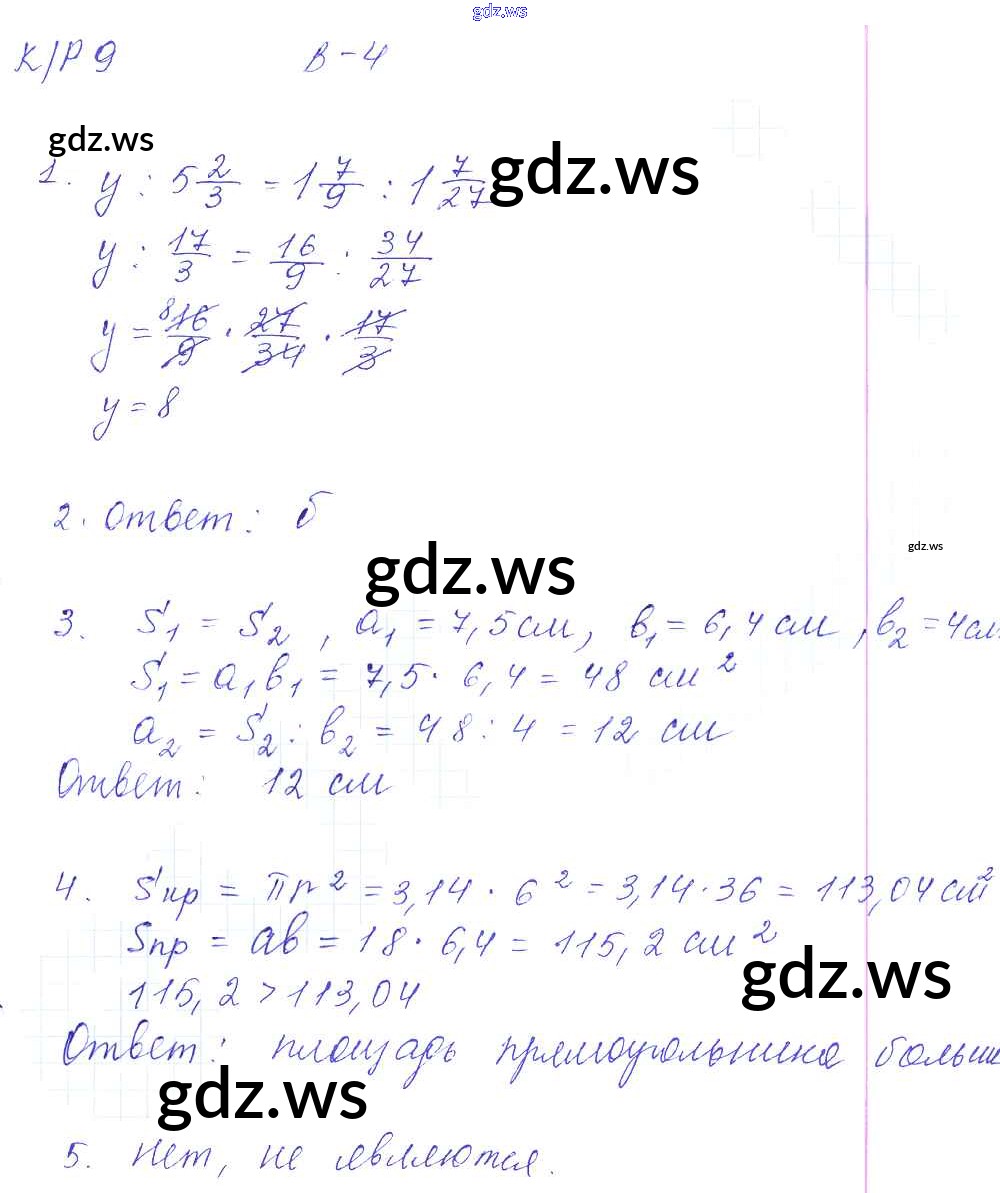 gdz.ws
К/Р 9 В-4
gdz.ws
1. y : 5 2/3 = 1 7/9 : 1 7/27
gdz.ws
y : 17/3 = 16/9 : 34/27
y = 8 16/9 · 27/34 · 17/3
y = 8
2. Ответ: б
gdz.ws
gdz.ws
3. S₁ = S₂, a₁ = 7,5 см, в₁ = 6,4 см, в₂ = 4 см
S₁ = a₁в₁ = 7,5 · 6,4 = 48 см²
a₂ = S₂ : в₂ = 48 : 4 = 12 см
Ответ: 12 см
4. Sкр = πr² = 3,14 · 6² = 3,14 · 36 = 113,04 см²
Sпр = ав = 18 · 6,4 = 115,2 см²
gdz.ws
115,2 > 113,04
Ответ: площадь прямоугольника больше
gdz.ws
5. Нет, не являются.